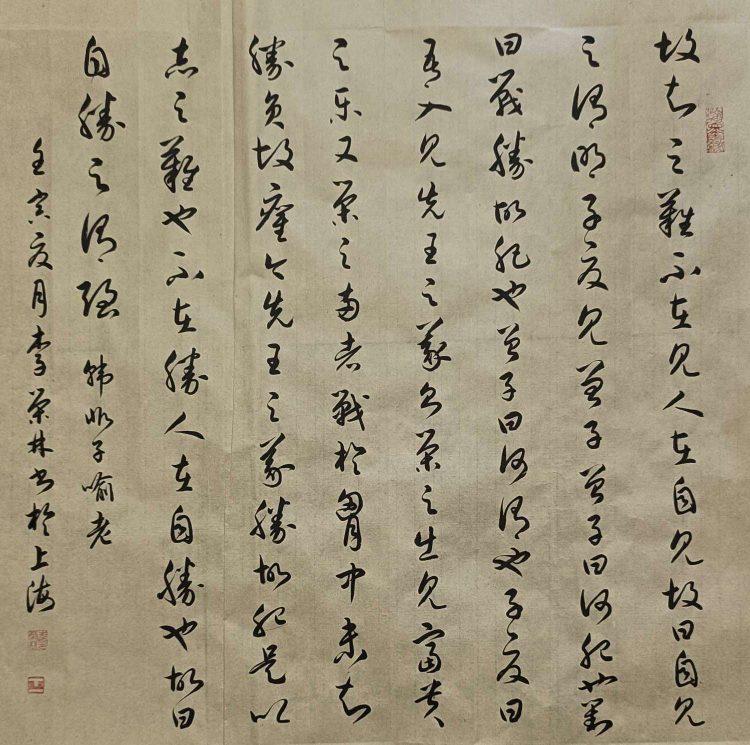 故知之難不在見人在自見故曰自見
之謂明子夏見曾子曾子曰何肥也對
曰戰勝故肥也曾子曰何謂也子夏曰
吾入見先王之義則榮之出見富貴
之樂又榮之兩者戰於胷中未知
勝負故癯今先王之義勝故肥是以
志之難也不在勝人在自勝也故曰
自勝之謂強 韓非子喻老
壬寅夏月李榮林書於上海